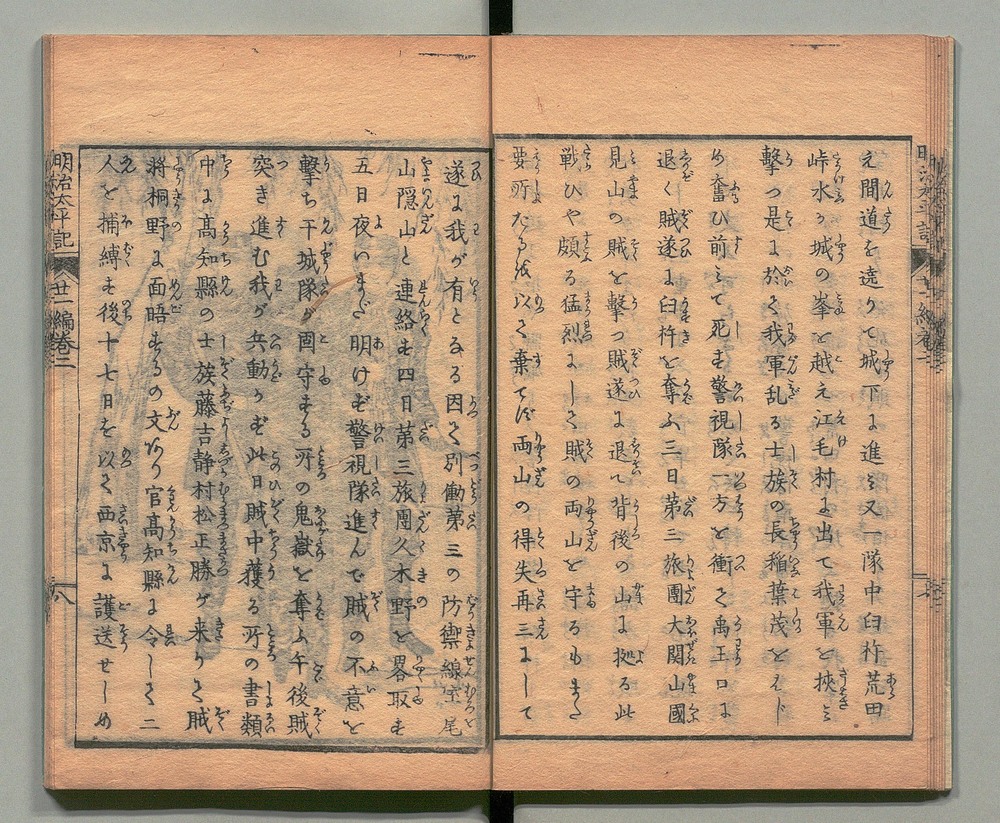 え間道を遶りて城下に進ミ又一隊中臼杵荒田
峠水ヶ城の峯を越え江毛村に出て我軍を挾ミ
擊つ是に於て我軍乱る士族の長稲葉茂をはじ
め奮ひ前ミて死す警視隊一方を衝て禹王口に
退く賊遂に臼杵を奪ふ三日第三旅團大関山國
見山の賊を擊つ賊遂に退て背後の山に拠る此
戦ひや頗る猛烈にして賊の両山を守るもまた
要所たるを以て棄てず両山の得失再三にして
遂に我が有となる因て別働第三の防禦線宝尾
山隠山と連絡す四日第三旅團久木野を畧取す
五日夜いまだ明けず警視隊進んで賊の不意を
擊ち干城隊が固守する所の鬼嶽を奪ふ午後賊
突き進む我が兵動かず此日賊中獲る所の書類
中に髙知縣の士族藤吉静村松正勝が来りて賊
將桐野に面晤するの文あり官髙知縣に令して二
人を捕縛す後十七日を以て西京に護送せしめ
明治太平記
廿一編巻二
八